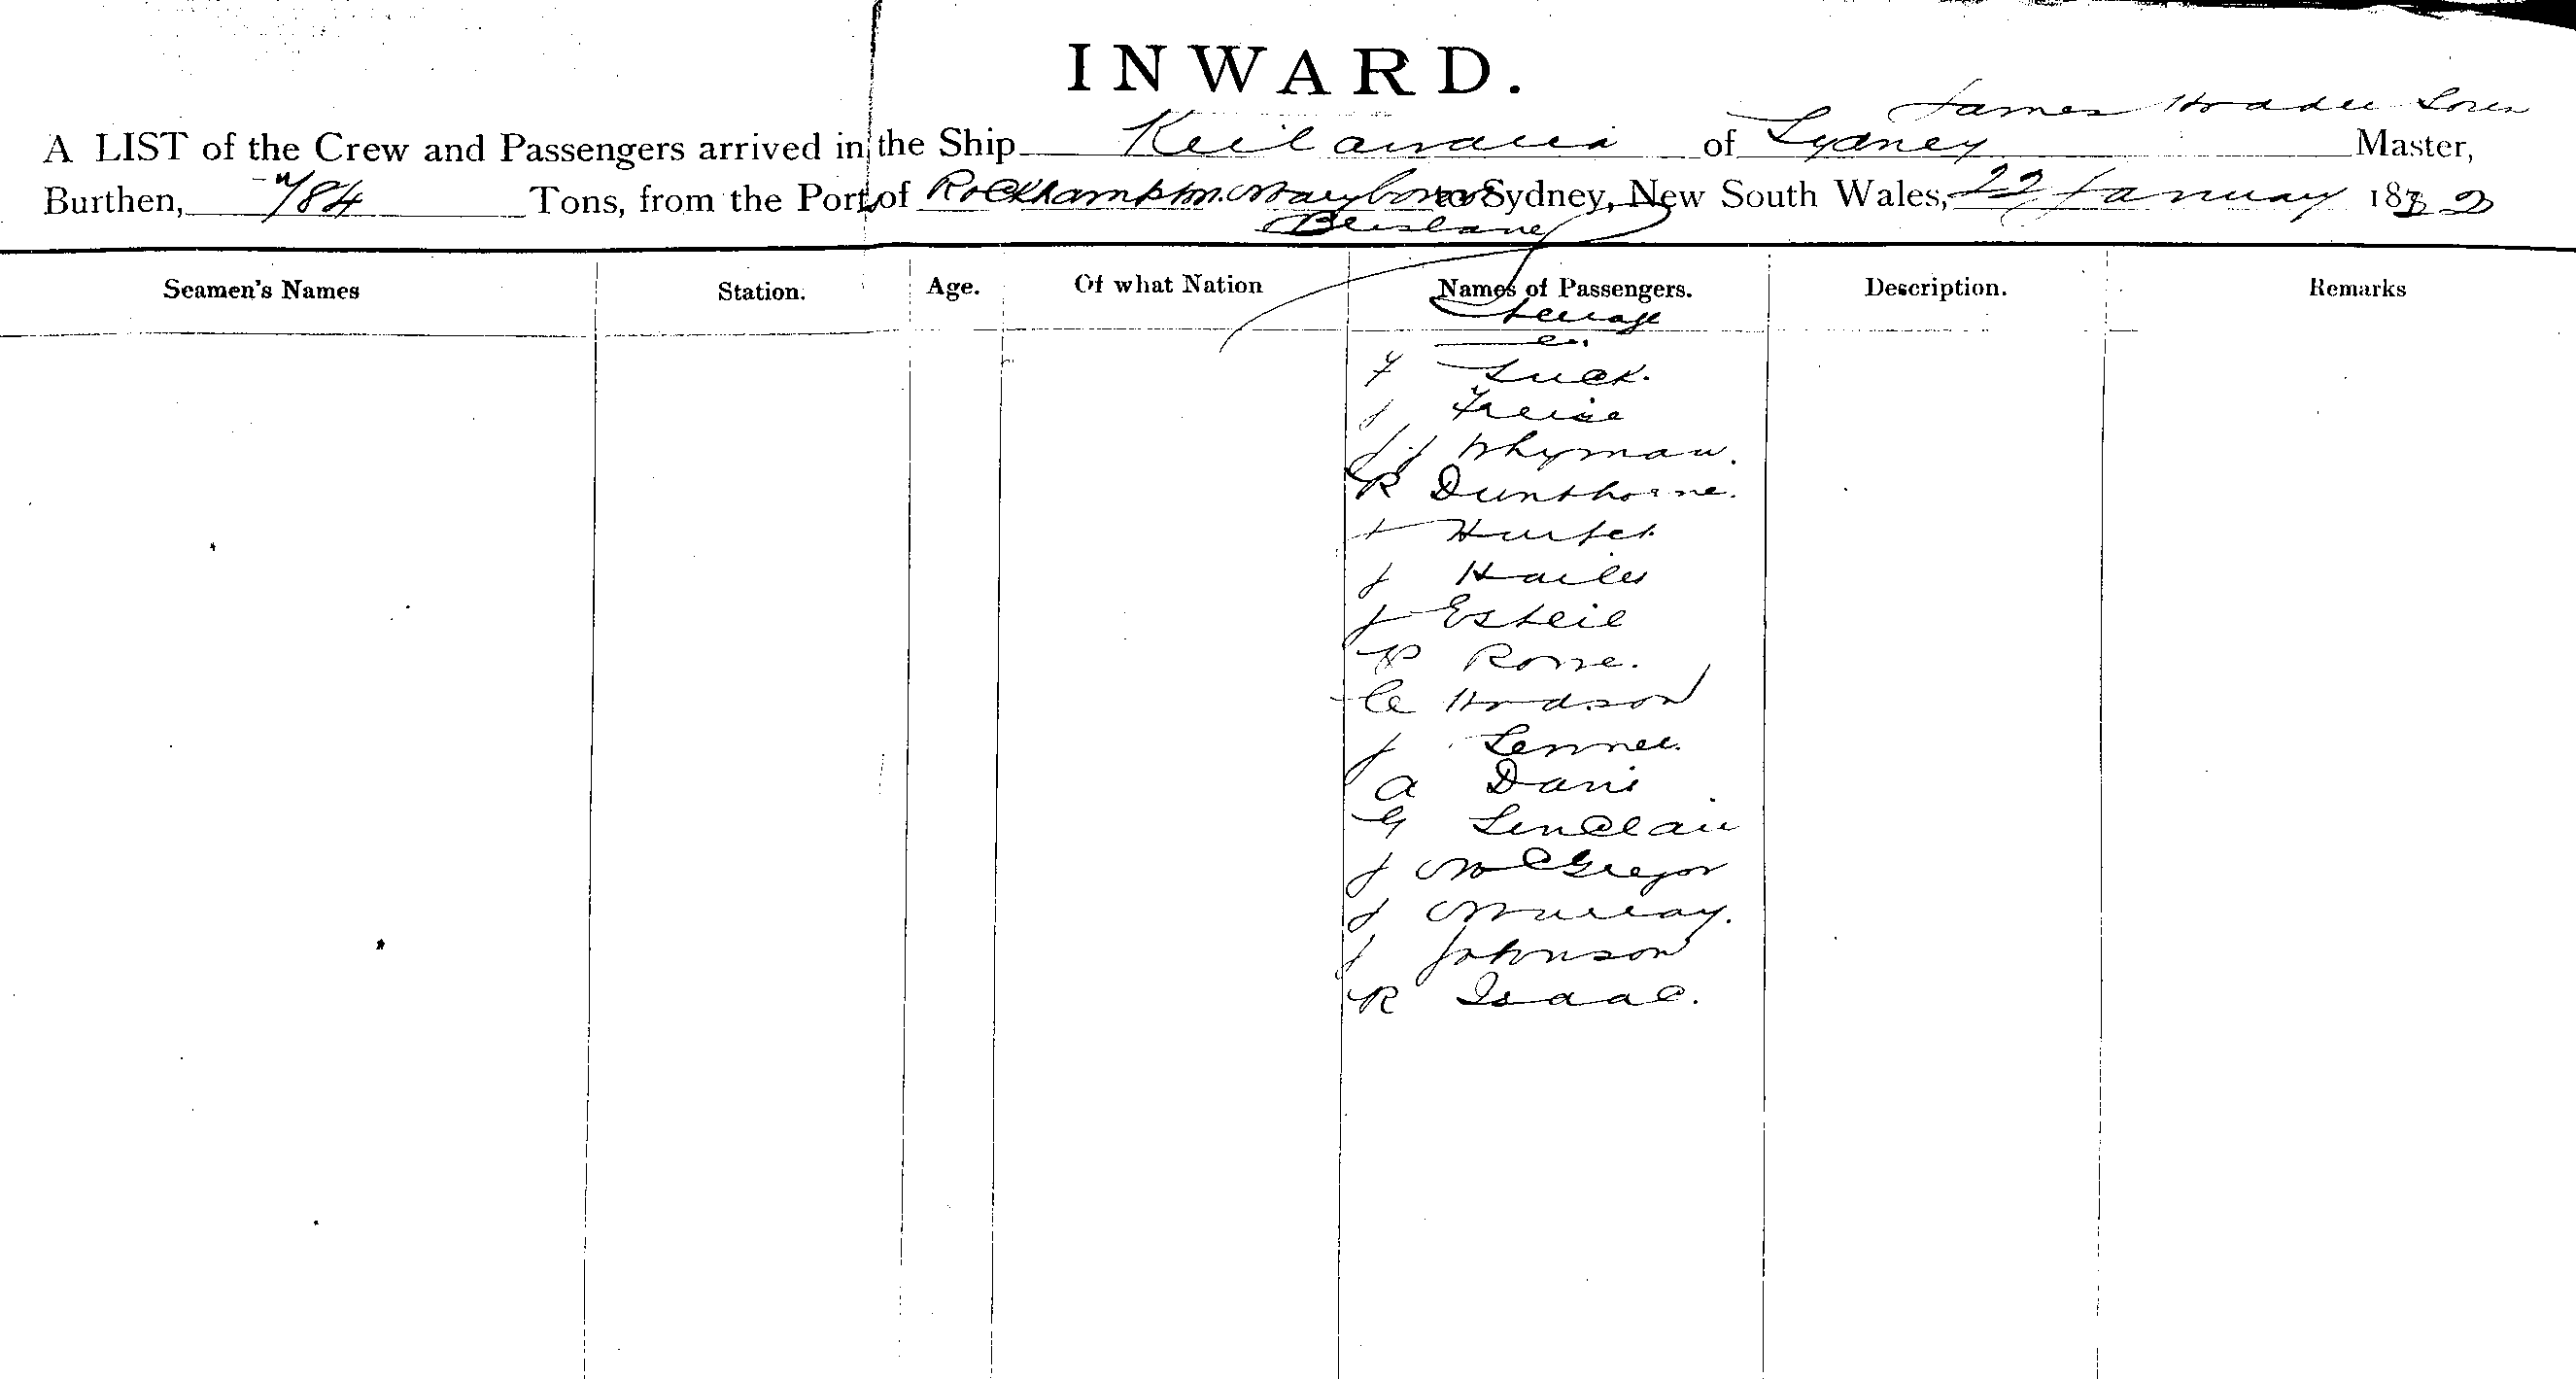 INWARD.
James Hodder Loven
A LIST of the Crew and Passengers arrived in the Ship Keilawarra of Sydney Master,
Burthen, 784 Tons, from the Port of Rockhampton. Maryboro to Sydney, New South Wales, 22 January 1882
Brisbane
Seamen's Names Station. Age. Of what Nation Names of Passengers. Description. Remarks
Steerage
F Luck.
J
J J Whyman.
R Dunthorne.
J Hailes
J
R Rowe.
C Hodson
J
A Davis
G Sinclair
J McGregor
J Murray.
J Johnson
R Isaac.